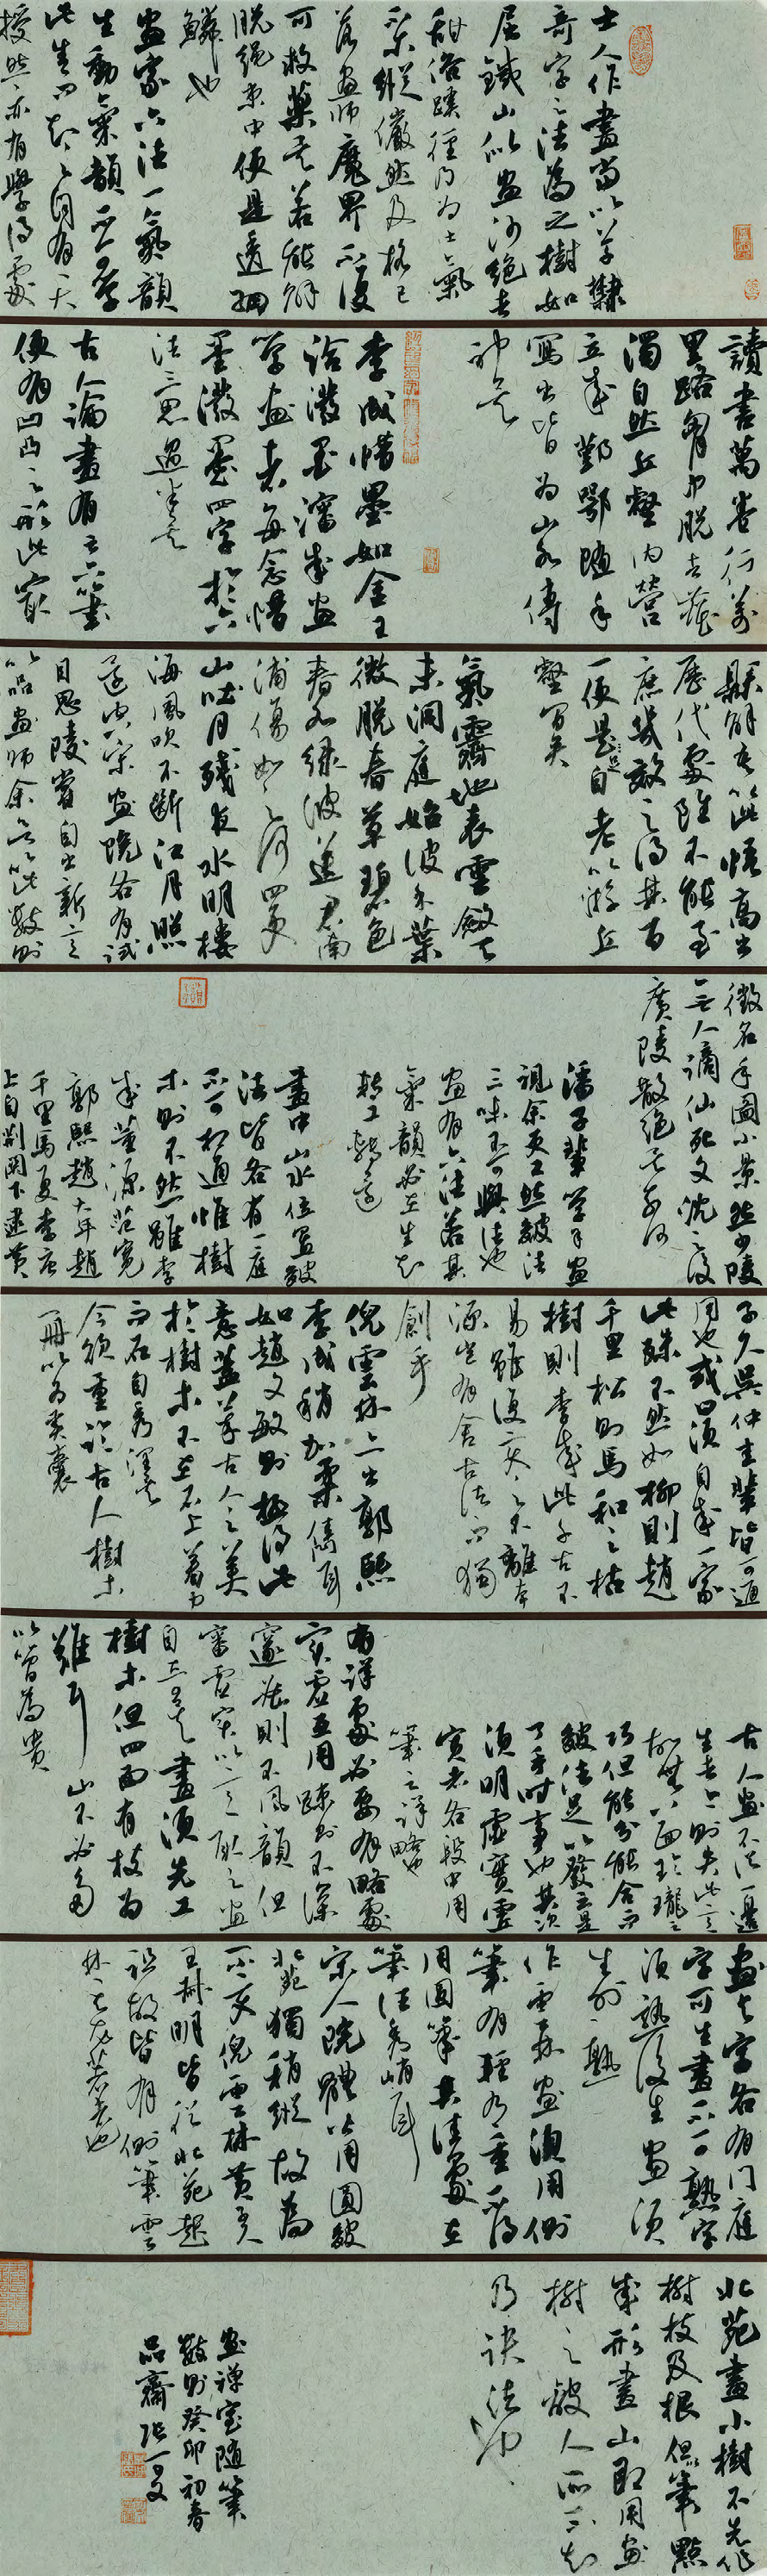 士人作畫當以草隸
奇字之法為之樹如
屈鐵山似畫沙絕去
甜俗蹊徑乃為士氣
不爾縱儼然及格已
落畫師魔界不復
可救藥矣若能解
脫繩束中便是透網
鱗也
畫家六法一氣韻
生動氣韻不可學
此生而知之自有天
授然亦有學得處
讀書萬卷行萬
里路胸中脫去塵
濁自然丘壑內營
立成鄞鄂隨手
寫出皆為山水傳
神矣
李成惜墨如金王
洽潑墨瀋成畫
學畫者每念惜
墨潑墨四字於六
法三思過半矣
古人論畫有云下筆
便有凹凸之形此最
懸解吾以此悟高出
歷代處雖不能至
庶幾效之得其百
一便足自老以游丘
壑間矣
氣霽地表雲斂天
末洞庭始波木葉
微脫春草碧色
春水綠波送君南
浦傷如之何四更
山吐月殘夜水明樓
海風吹不斷江月照
還空宋畫院各有試
目思陵嘗自出新意
以品畫師余欲以此數則
徵名手圖小景然少陵
無人謫仙死文沈之後
廣陵散絕矣奈何
潘子輩學余畫
視余更工然皴法
三昧不可與語也
畫有六法若其
氣韻必在生知
轉工轉遠
畫中山水位置皴
法皆各有門庭
不可相通惟樹
木則不然雖李
成董源范寬
郭熙趙大年趙
千里馬夏李唐
上自荊關下逮黃
子久吳仲圭輩皆可通
用也或曰須自成一家
此殊不然如柳則趙
千里松則馬和之枯
樹則李成此千古不
易雖復變之不離本
源豈有舍古法而獨
創乎
倪雲林亦出郭熙
李成稍加柔雋耳
如趙文敏則極得此
意蓋萃古人之美
於樹木不在石上著力
而石自秀潤矣
今欲重臨古人樹木
一冊以為奚囊
古人畫不從一邊
生去今則失此意
故無八面玲瓏之
巧但能分能合而
皴法足以發之是
了手時事也其次
須明虛實虛
實者各段中用
筆之詳略也
有詳處必要有略處
實虛互用疏則不深
邃密則不風韻但
審虛實以意取之畫
自奇矣畫須先工
樹木但四面有枝為
難耳山不必多
以簡為貴
畫與字各有門庭
字可生畫不可熟字
須熟後生畫須
生外熟
作雲林畫須用側
筆有輕有重不得
用圓筆其佳處在
筆法秀峭耳
宋人院體皆用圓皴
北苑獨稍縱故為
一小變倪雲林黃子久
王叔明皆從北苑起
祖故皆有側筆雲
林其尤著者也
北苑畫小樹不先作
樹枝及根但筆點
成形畫山即用畫
樹之皴人所不知
乃訣法也
畫禪室隨筆
數則癸卯初春
品齋